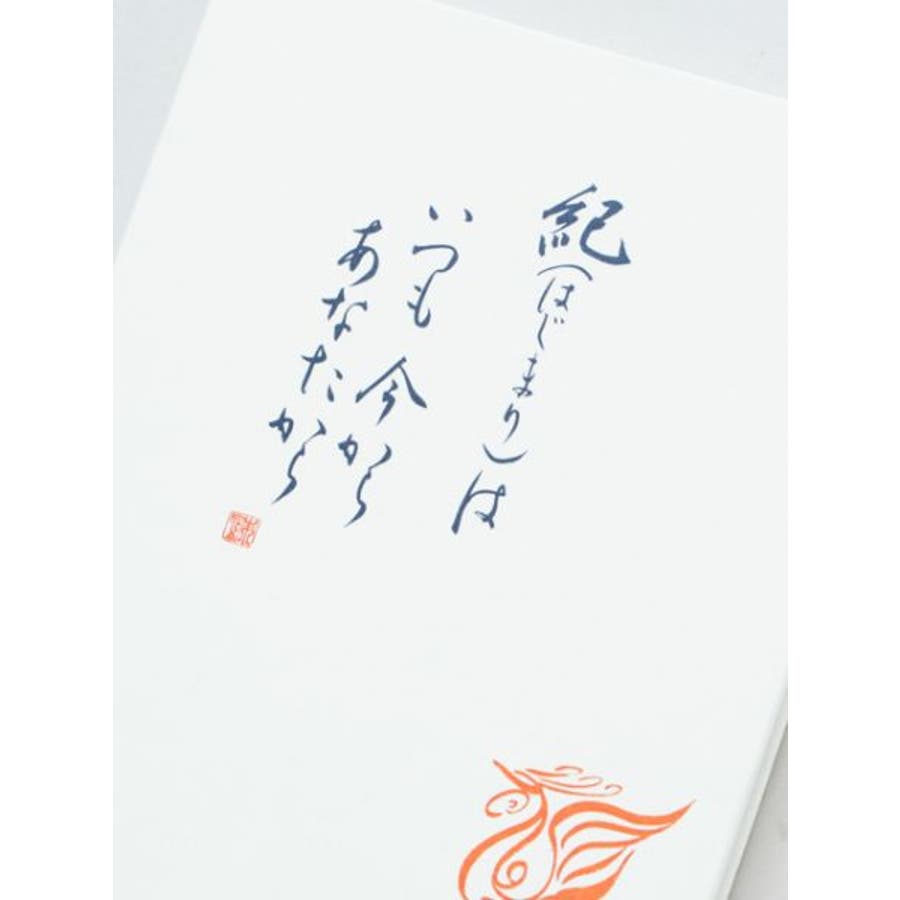 紀(はじまり)は
いつも 今から
あなたから